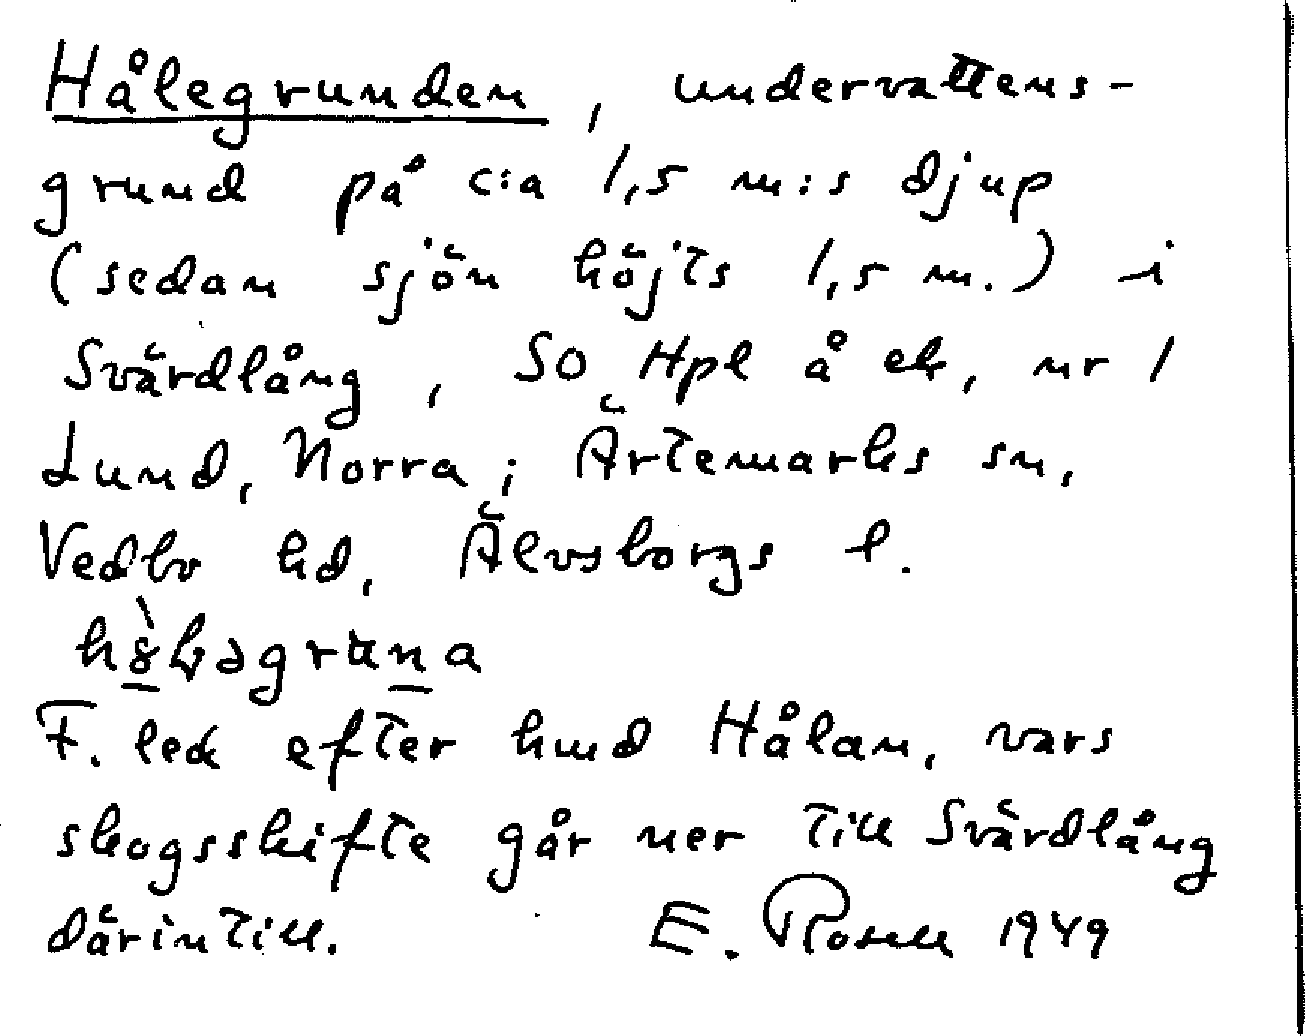 Hålegrunden, undervattens-
grund på c:a 1,5 m:s djup
(sedan sjön höjts 1,5 m.) i
Svärdlång, SO Hpl å ek, nr 1
Lund, Norra; Ärtemarks sn,
Vedbo hd, Älvsborgs l.
F. leck efter hmd Hålan, vars
skogsskifte går ner till Svärdlång
därintill. E. Rosell 1949